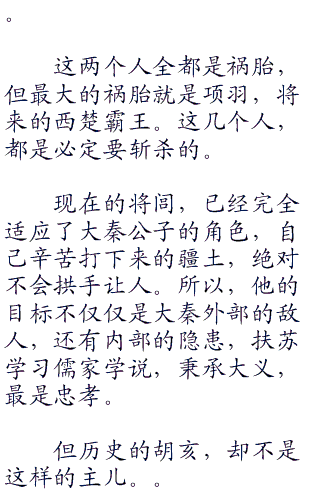 。
这两个人全都是祸胎，
但最大的祸胎就是项羽，将
来的西楚霸王。这几个人，
都是必定要斩杀的。
现在的将闾，已经完全
适应了大秦公子的角色，自
己辛苦打下来的疆土，绝对
不会拱手让人。所以，他的
目标不仅仅是大秦外部的敌
人，还有内部的隐患，扶苏
学习儒家学说，秉承大义，
最是忠孝。
但历史的胡亥，却不是
这样的主儿。。